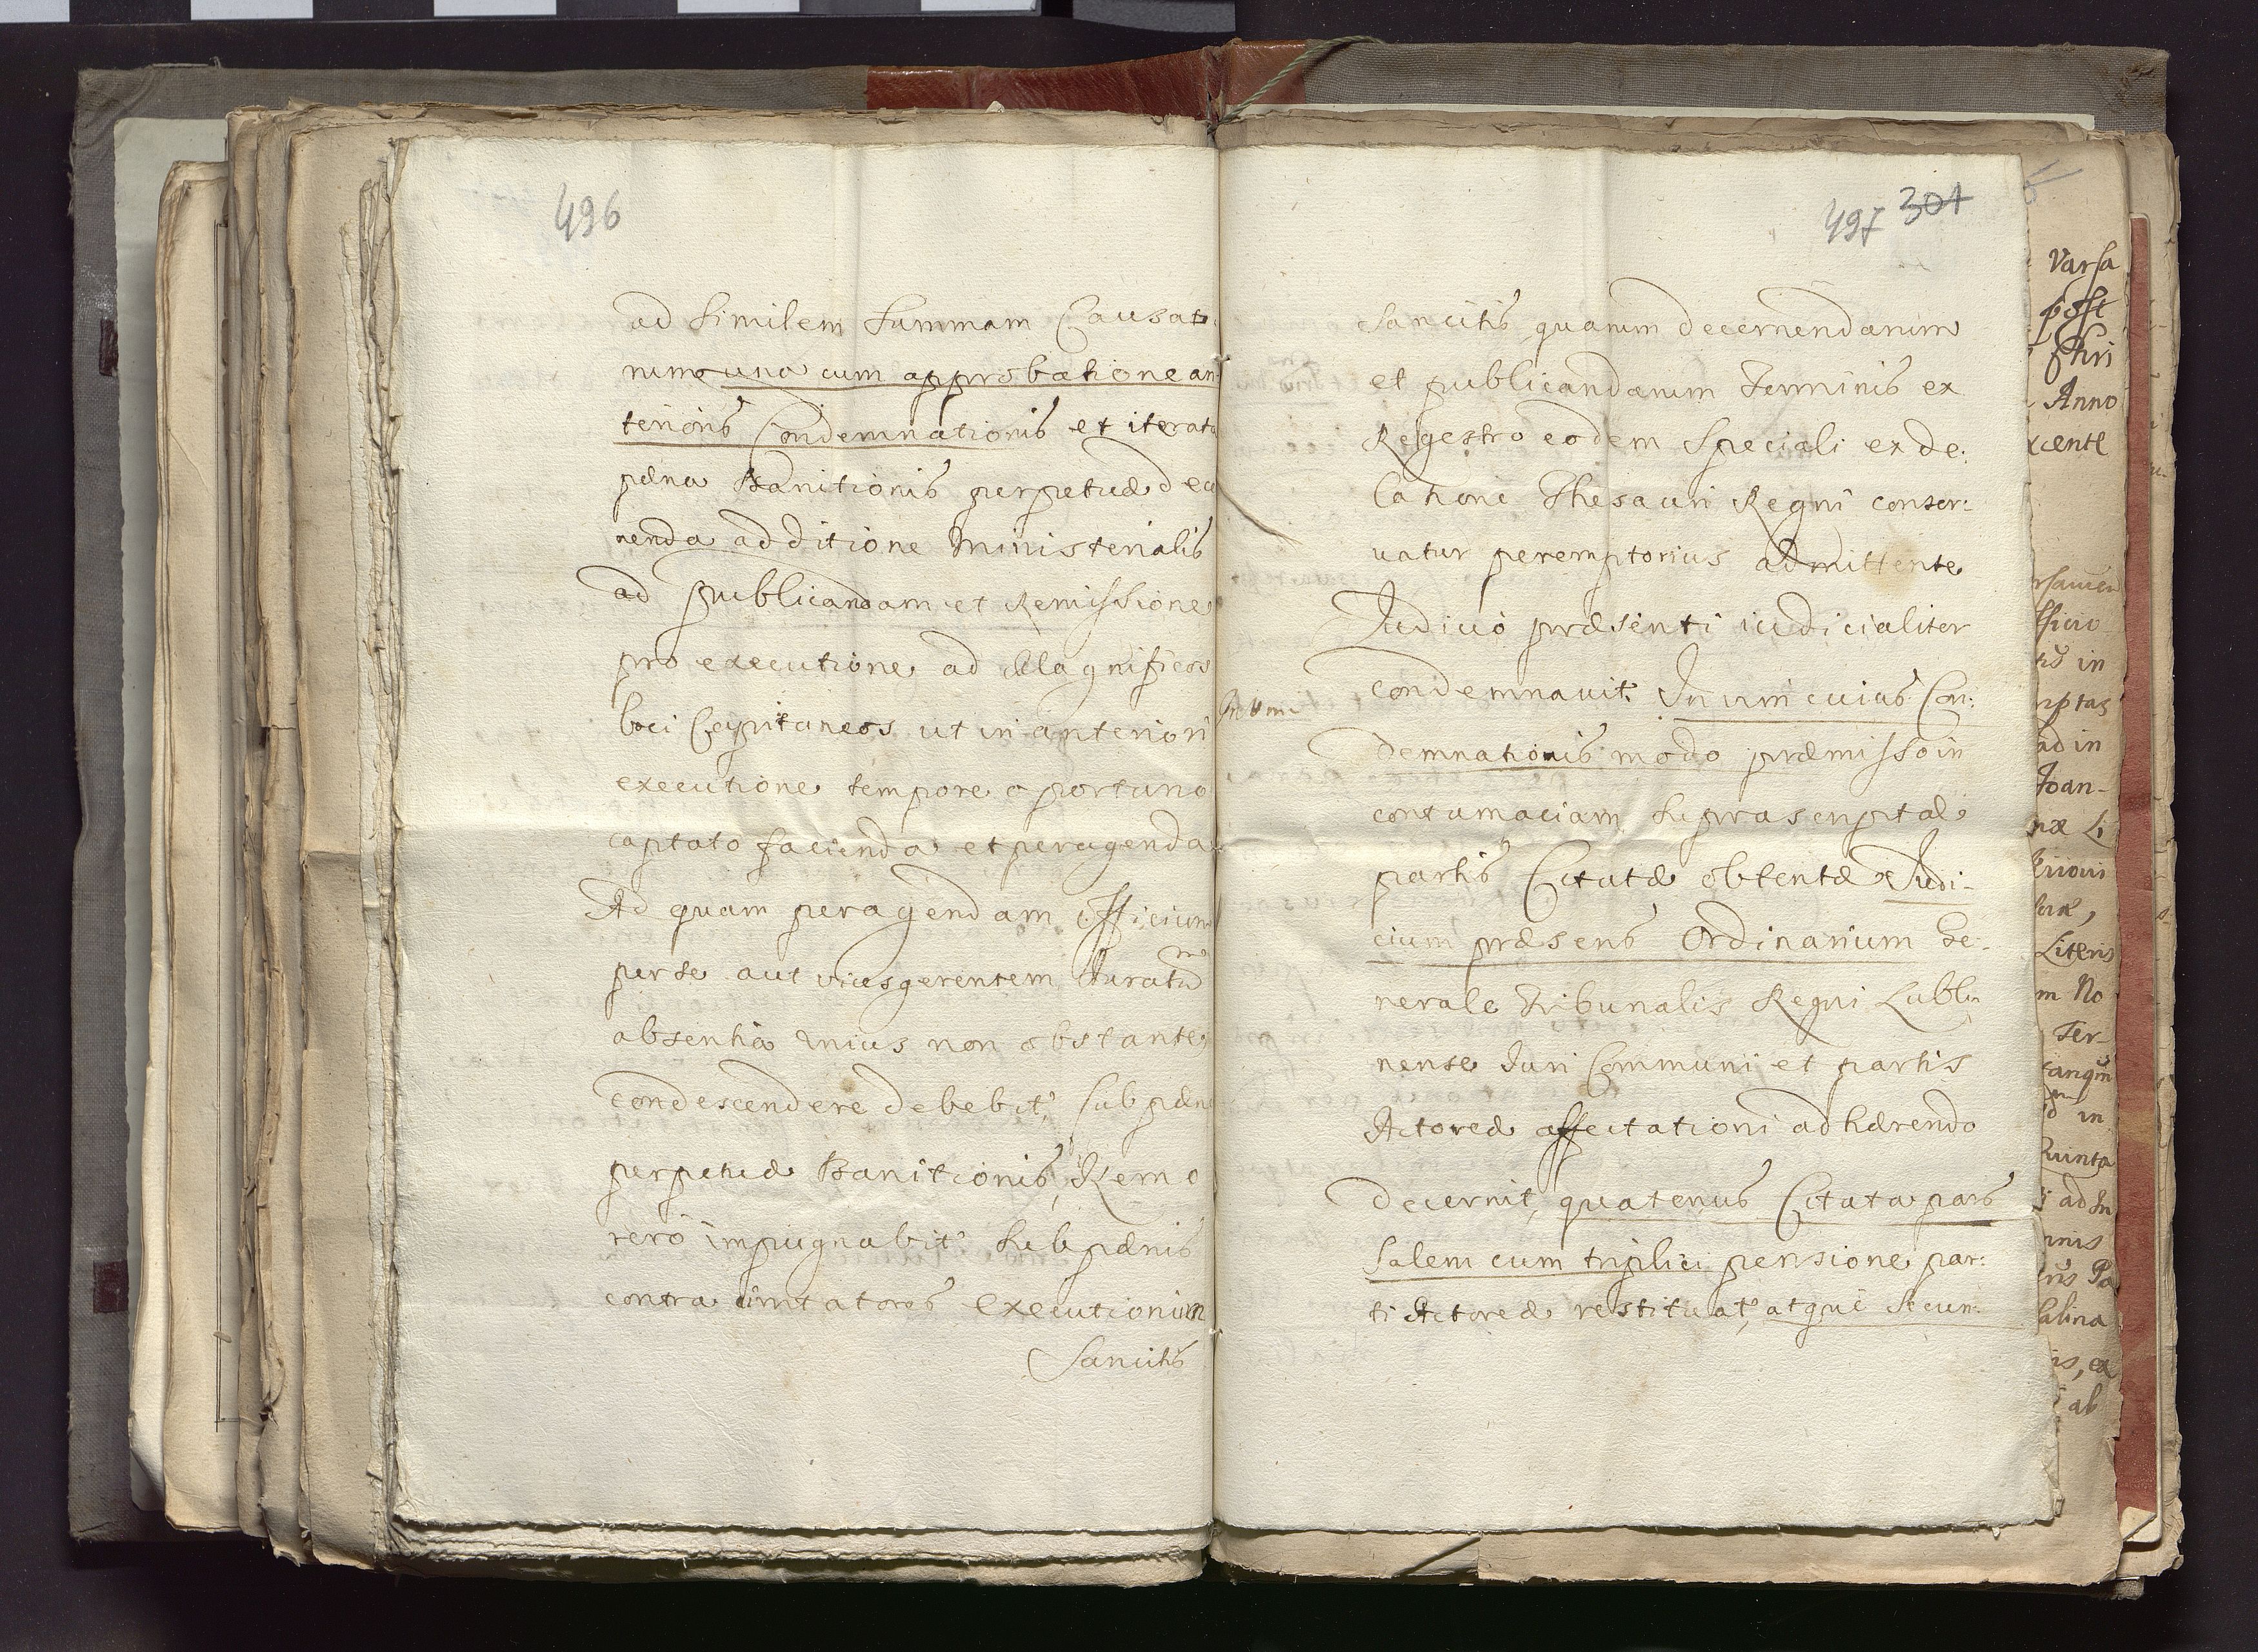 496
ad Similem Summam Causat
rum una cum approbatione an
terioris Condemnationis et iterata
pæna Bannitionis perpetuæ dec
nenda additione Ministerialis
ad publicandam et Remissione
pro executione ad Magnificos
loci Capitaneos ut in anteriori
executione tempore oportuno
captato facienda et peragenda
Ad quam peragendam Officium
per se aut vicesgerentem Juratum
absentia unius non obstante
condescendere debebit, sub pæna
perpetuæ Banitionis, Remo
rero impugnabit sub pænis
contra imitatores executionum
Sancitis
497 301
Sancitis quarum decernendarum
et publicandarum Terminus ex
Regestro eodem Speciali ex de:
latione Thesauri Regni conser:
vatur peremptorius admittente
Judicio præsenti iudicialiter
condemnavit. In vim cuius Con:
In vim
demnationis modo præmisso in
contumaciam suprascriptæ
partis Citatæ obtentæ Judi-
cium præsens Ordinarium Ge-
nerale Tribunalis Regni Lubli
nense Juri Communi et partis
Actoreæ affectationi adhærendo
decernit, quatenus Citata pars
Salem cum triplici pensione par:
ti Actoreæ restituat, atque secun:
Varsa
post
Anno
in
ad in
Joan-
Literis
m No
Ter-
in
Quinta
ad In
Pa
alina
ab